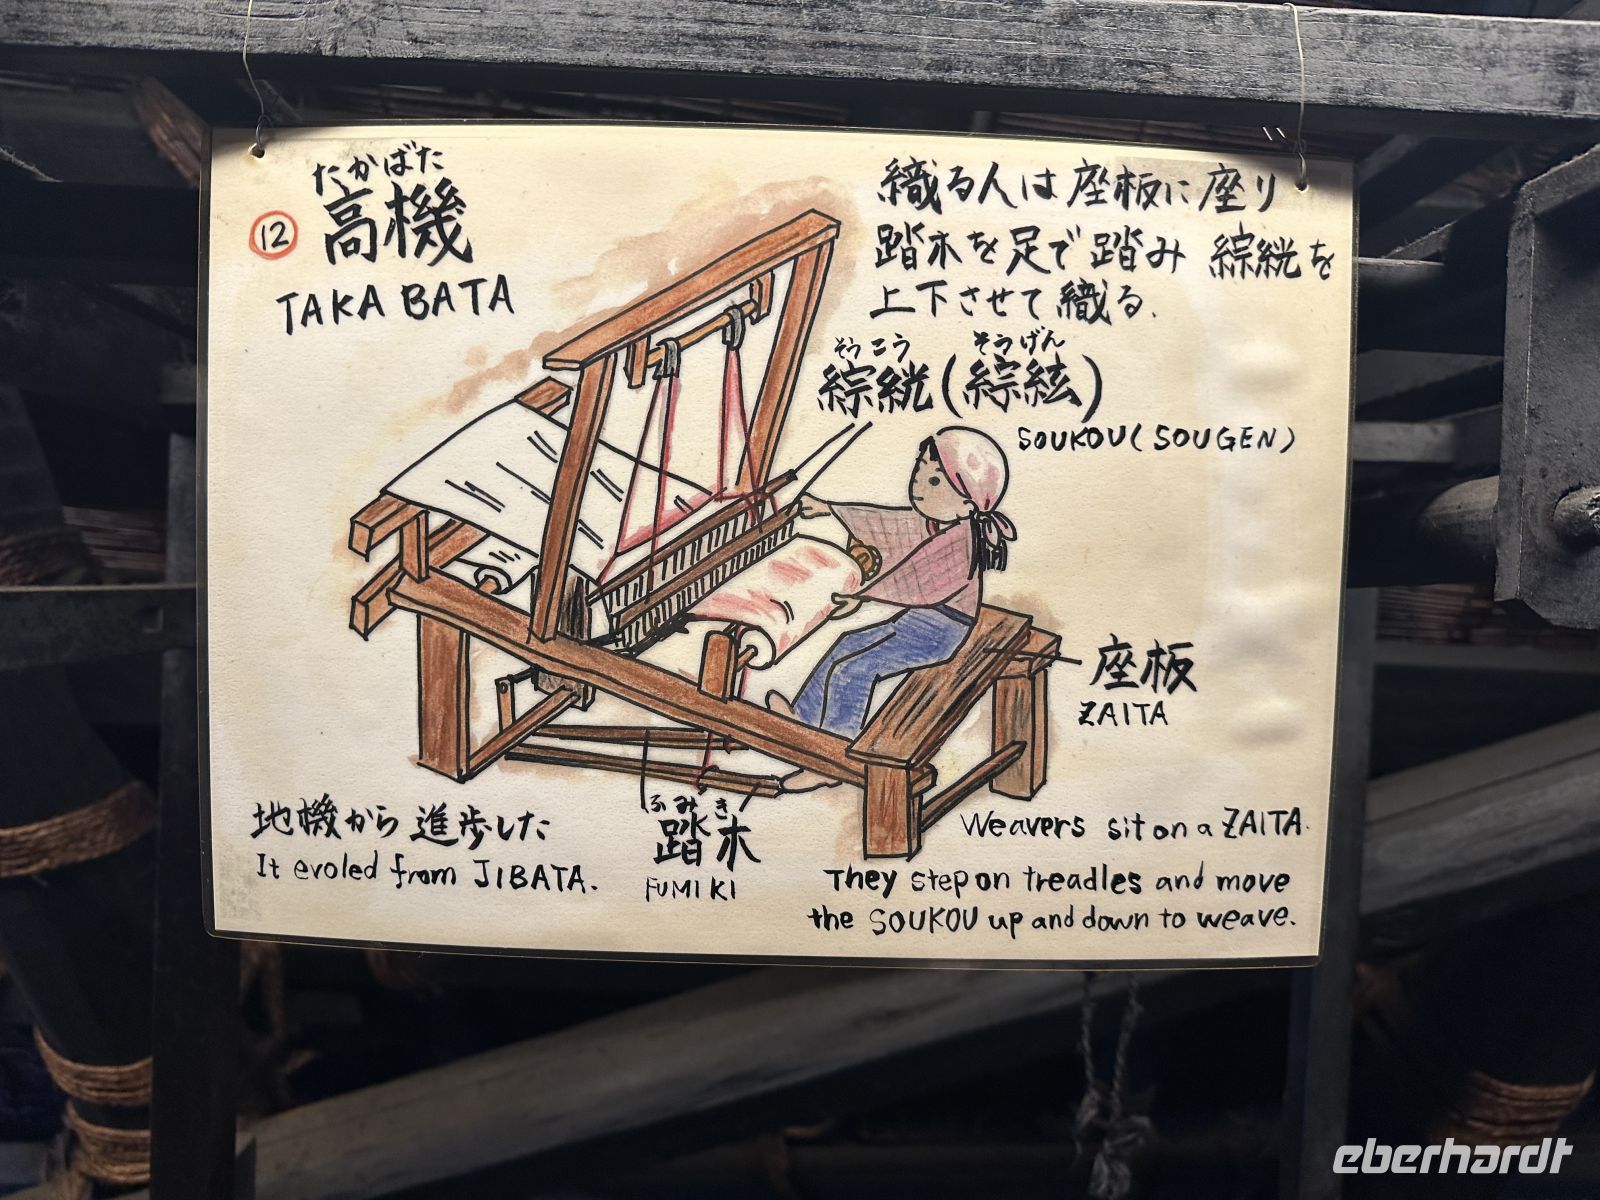 たかばた
⑫ 高機
TAKABATA
織る人は座板に座り
踏木を足で踏み 綜絖を
上下させて織る.
そうこう そうげん
綜絖(綜絃)
SOUKOU(SOUGEN)
座板
ZAITA
地機から進歩した
It evoled from JIBATA.
ふみき
踏木
FUMIKI
Weavers sit on a ZAITA.
They step on treadles and move
the SOUKOU up and down to weave.
eberhardt